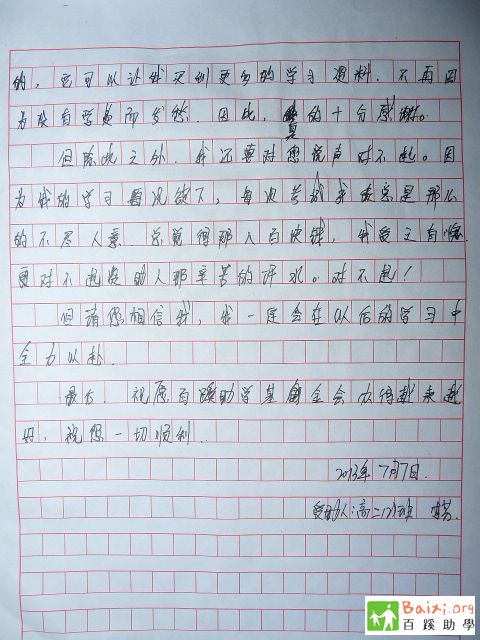 的，它可以让我买到更多的学习资料，不再因
为没有学费而发愁。因此，真的十分感谢。
但除此之外，我还要对您说声对不起。因
为我的学习情况欠下，每次考试我成总是那么
的不尽人意，总觉得那八百块钱，我受之有愧。
更对不起资助人那辛苦的汗水。对不起！
但请您相信我，我一定会在以后的学习中
全力以赴。
最后，祝愿百蹊助学基金会办得越来越
好，祝您一切顺利。
2013年7月7日
受助人：高二(2)班
Baixi.org
百蹊助學